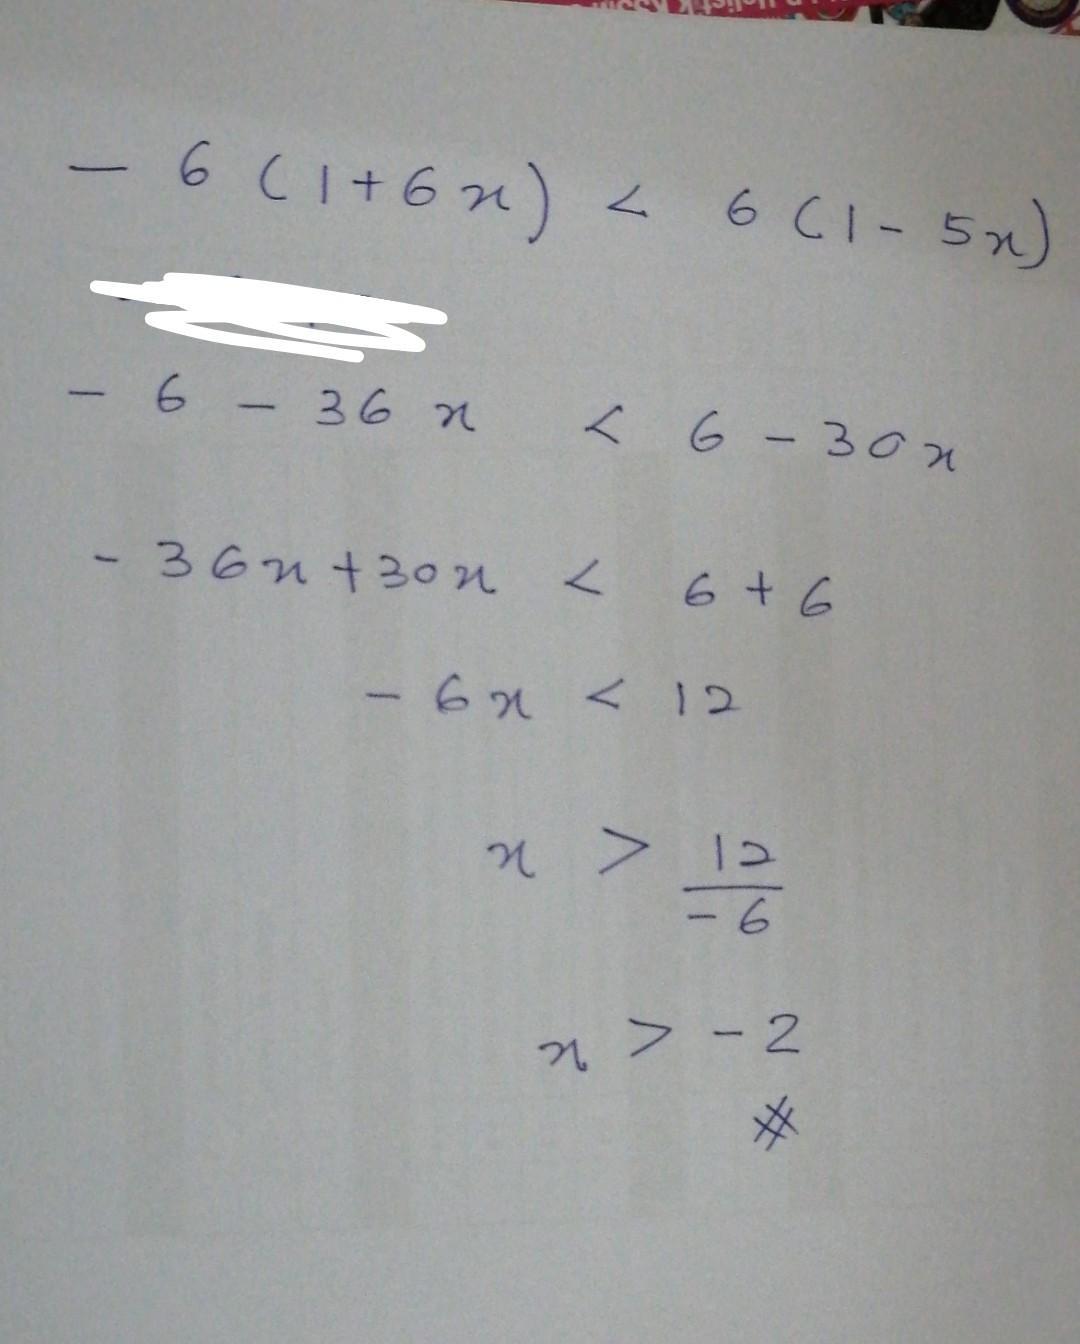 - 6 (1+6x) < 6 (1 - 5x)
- 6 - 36 x < 6 - 30x
- 36x + 30x < 6 + 6
- 6x < 12
x > 12/-6
x > -2
#